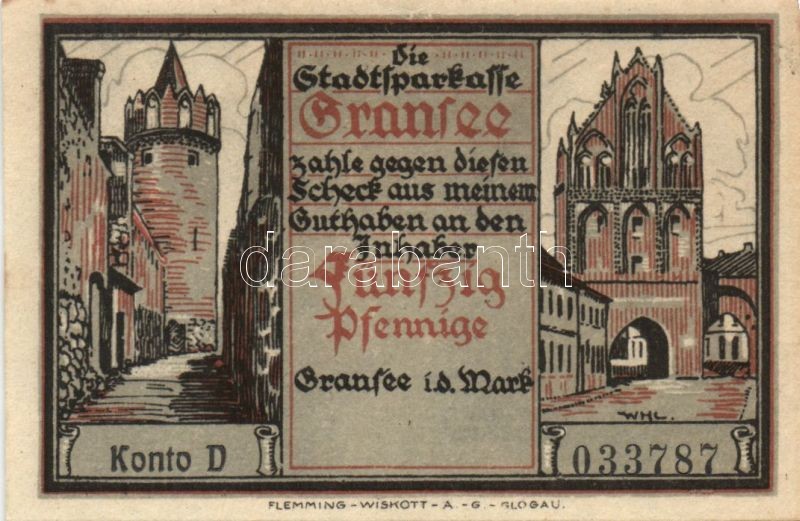 Die
Stadtsparkasse
Gransee
zahle gegen diesen
Scheck aus meinem
Guthaben an den
Inhaber
Fünfzig
Pfennige
Gransee i.d. Mark
WHL.
Konto D
033787
FLEMMING-WISKOTT-A.-G.-GLOGAU.
darabanth.com